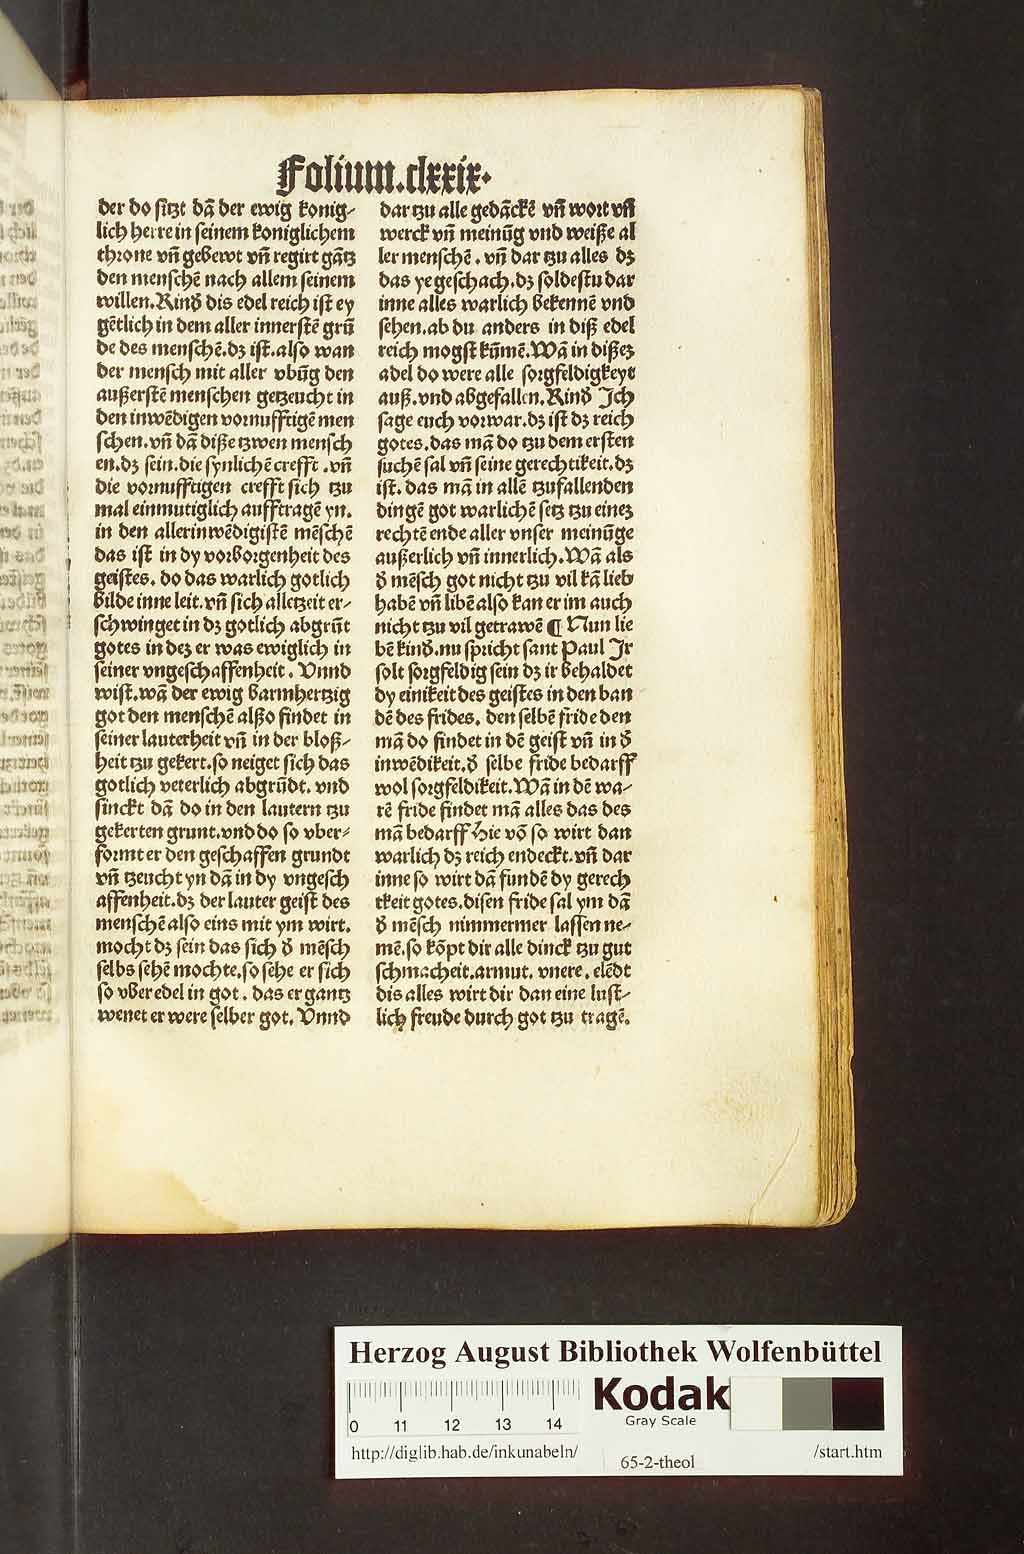 Folium.clxxix.
der do sitzt dā der ewig konig-
lich herre in seinem koniglichem
throne vn̄ gebewt vn̄ regirt gātz
den menschē nach allem seinem
willen. Kinđ dis edel reich ist ey
gētlich in dem aller innerstē grū
de des menschē.dz ist.also wan
der mensch mit aller vbūg den
außerstē menschen getzeucht in
den inwēdigen vornufftigē men
schen.vn̄ dā diße tzwen mensch
en.dz sein.die synlichē crefft.vn̄
die vornufftigen crefft sich tzu
mal einmutiglich aufftragē yn.
in den allerinwēdigistē mēschē
das ist in dy vorborgenheit des
geistes. do das warlich gotlich
bilde inne leit.vn̄ sich alletzeit er-
schwinget in dz gotlich abgrūt
gotes in dez er was ewiglich in
seiner vngeschaffenheit. Vnnd
wist.wā der ewig barmhertzig
got den menschē alßo findet in
seiner lauterheit vn̄ in der bloß-
heit tzu gekert.so neiget sich das
gotlich veterlich abgrūdt. vnd
sinckt dā do in den lautern tzu
gekerten grunt.vnd do so vber-
formt er den geschaffen grundt
vn̄ tzeucht yn dā in dy vngesch
affenheit.dz der lauter geist des
menschē also eins mit ym wirt.
mocht dz sein das sich đ mēsch
selbs sehē mochte.so sehe er sich
so vber edel in got. das er gantz
wenet er were selber got. Vnnd
dar tzu alle gedāckē vn̄ wort vn̄
werck vn̄ meinūg vnd weiße al
ler menschē. vn̄ dar tzu alles dz
das ye geschach.dz soldestu dar
inne alles warlich bekennē vnd
sehen.ab du anders in diß edel
reich mogst kūmē.Wā in dißez
adel do were alle sorgfeldigkeyt
auß.vnd abgefallen.Kinđ Ich
sage euch vorwar.dz ist dz reich
gotes.das mā do tzu dem ersten
suchē sal vn̄ seine gerechtikeit.dz
ist. das mā in allē tzufallenden
dingē got warlichē setz tzu einez
rechtē ende aller vnser meinūge
außerlich vn̄ innerlich.Wā als
đ mēsch got nicht tzu vil kā lieb
habē vn̄ libē also kan er im auch
nicht tzu vil getrawē ¶ Nun lie
bē kinđ.nu spricht sant Paul Ir
solt sorgfeldig sein dz ir behaldet
dy einikeit des geistes in den ban
dē des frides. den selbē fride den
mā do findet in dē geist vn̄ in đ
inwēdikeit.đ selbe fride bedarff
wol sorgfeldikeit.Wā in dē wa-
rē fride findet mā alles das des
mā bedarff Hie vō so wirt dan
warlich dz reich endeckt.vn̄ dar
inne so wirt dā fundē dy gerech
tkeit gotes.disen fride sal ym dā
đ mēsch nimmermer lassen ne-
mē.so kōpt dir alle dinck tzu gut
schmacheit.armut. vnere. elēdt
dis alles wirt dir dan eine lust-
lich freude durch got tzu tragē.
Herzog August Bibliothek Wolfenbüttel
0 11 12 13 14
Kodak
Gray Scale
http://diglib.hab.de/inkunabeln/ 65-2-theol /start.htm